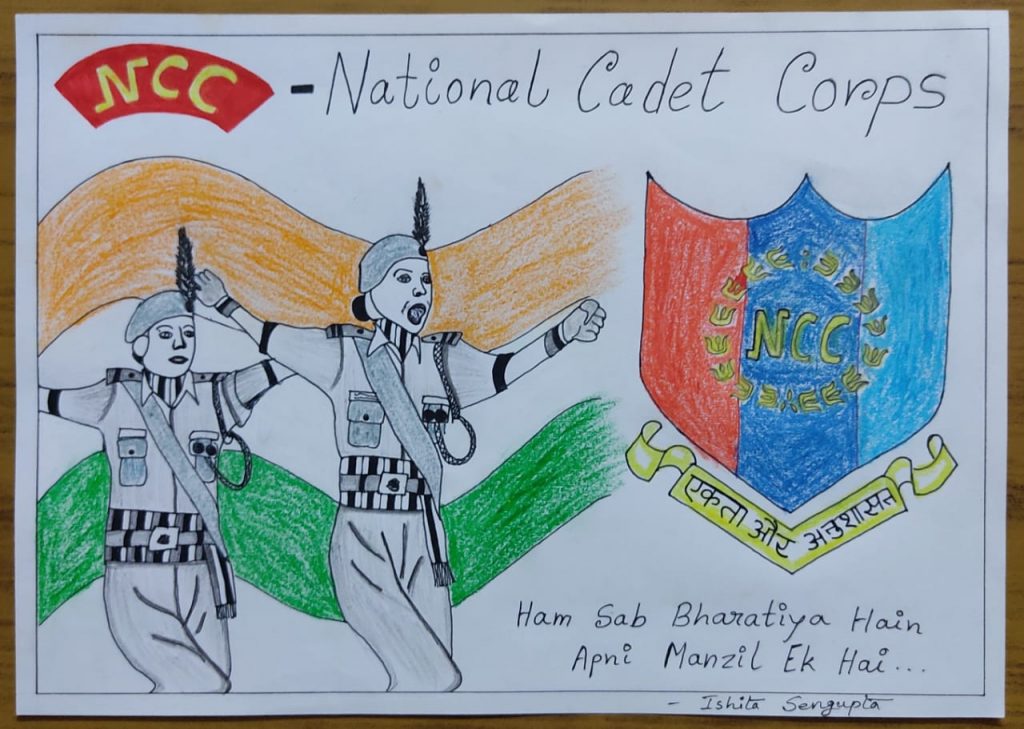 NCC - National Cadet Corps
NCC
एकता और अनुशासन
Ham Sab Bharatiya Hain
Apni Manzil Ek Hai...
- Ishita Sengupta